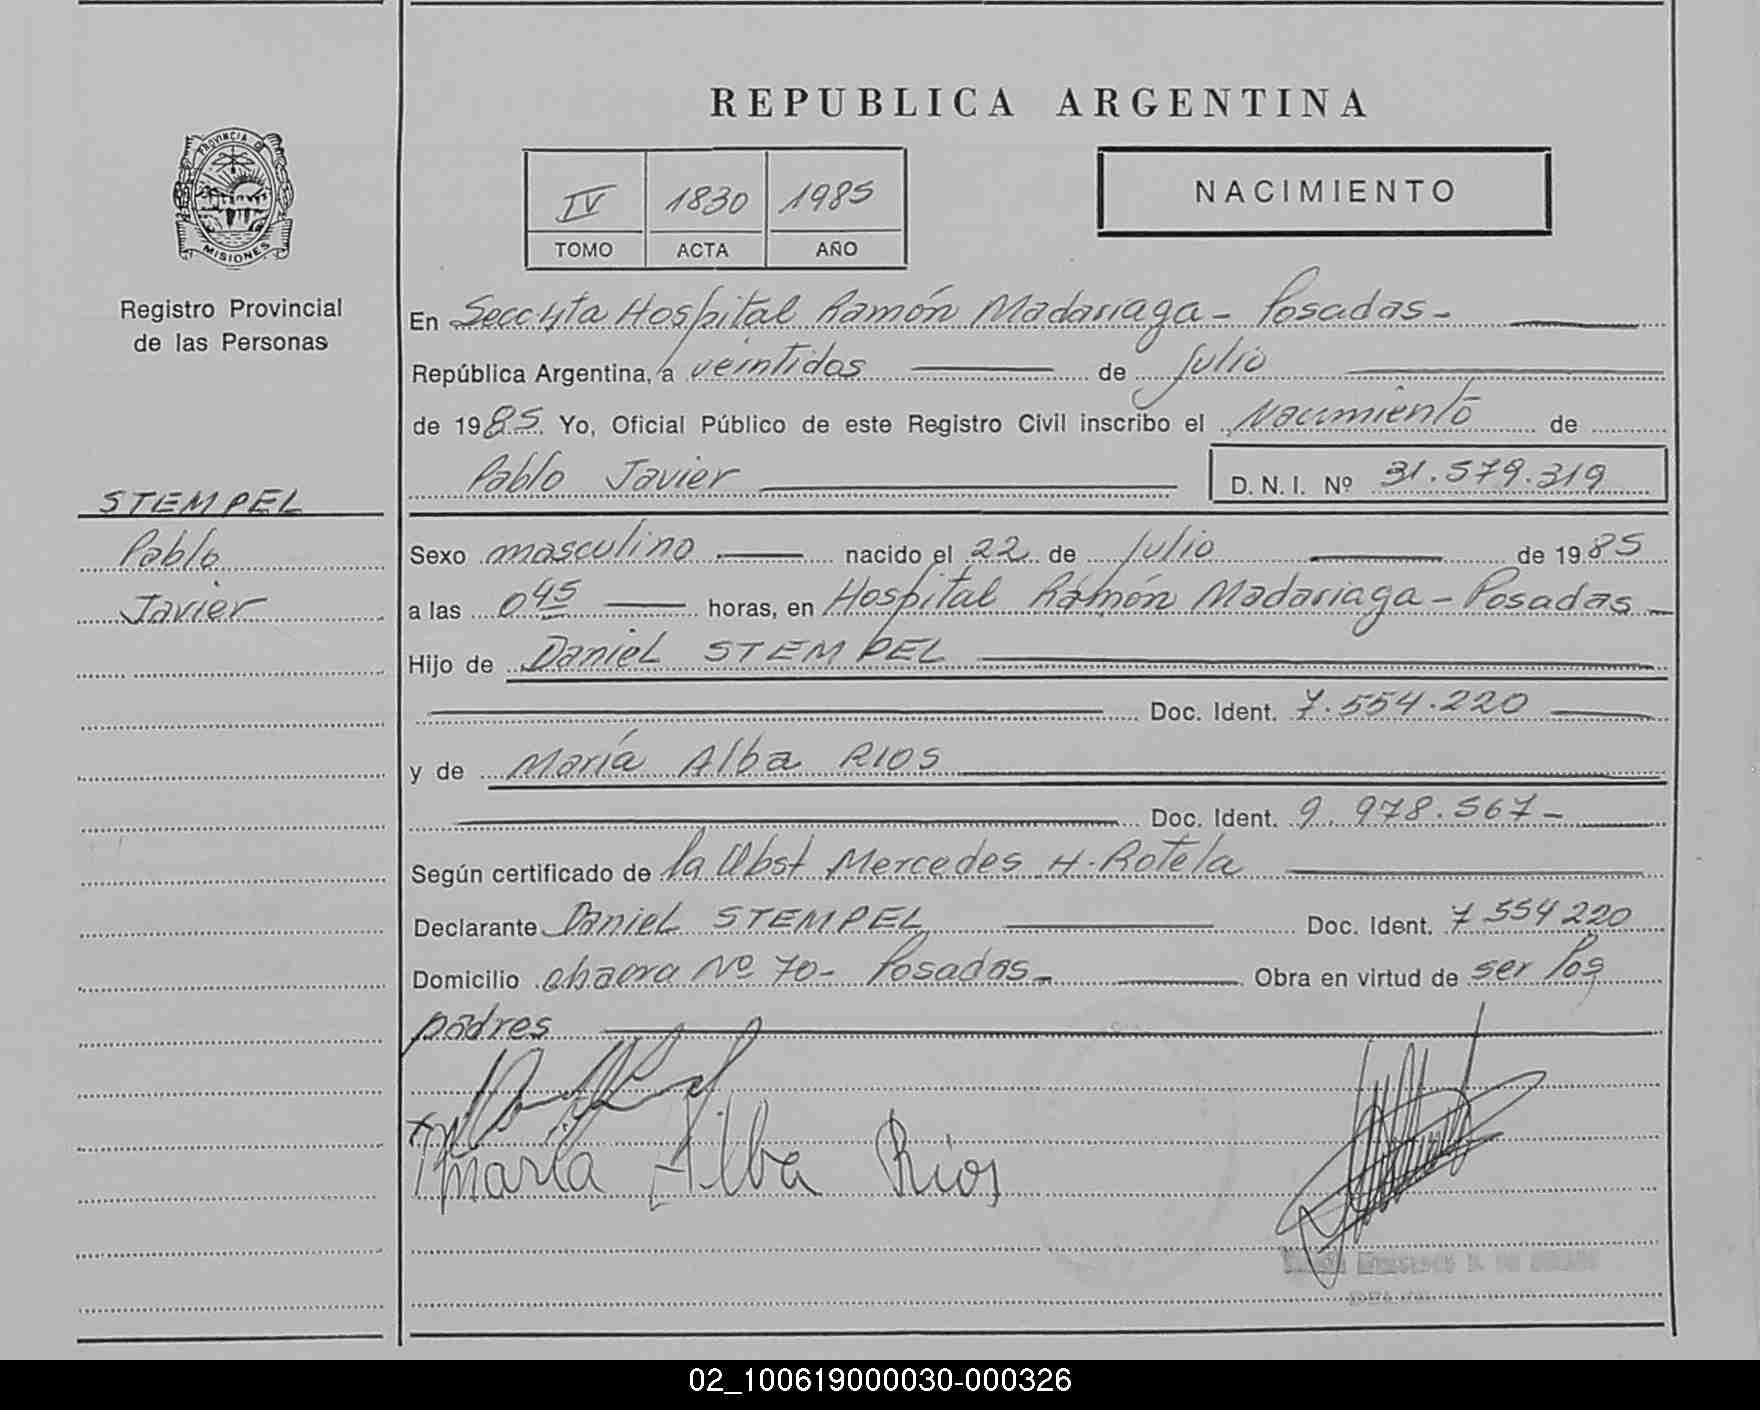 REPUBLICA ARGENTINA
PROVINCIA DE
MISIONES
Registro Provincial
de las Personas
IV 1830 1985
TOMO ACTA AÑO
NACIMIENTO
En Secc 4ta Hospital Ramón Madariaga - Posadas -
República Argentina, a veintidos de Julio
de 1985. Yo, Oficial Público de este Registro Civil inscribo el Nacimiento de
Pablo Javier D. N. I. Nº 31.579.319
STEMPEL
Pablo
Javier
Sexo masculino nacido el 22 de Julio de 1985
a las 045 horas, en Hospital Ramón Madariaga - Posadas
Hijo de Daniel STEMPEL
Doc. Ident. 7.554.220
y de María Alba RIOS
Doc. Ident. 9.978.567-
Según certificado de la Obst Mercedes H. Rotela
Declarante Daniel STEMPEL Doc. Ident. 7 554 220
Domicilio chacra Nº 70- Posadas- Obra en virtud de ser los
padres
María Alba Rios
02_100619000030-000326